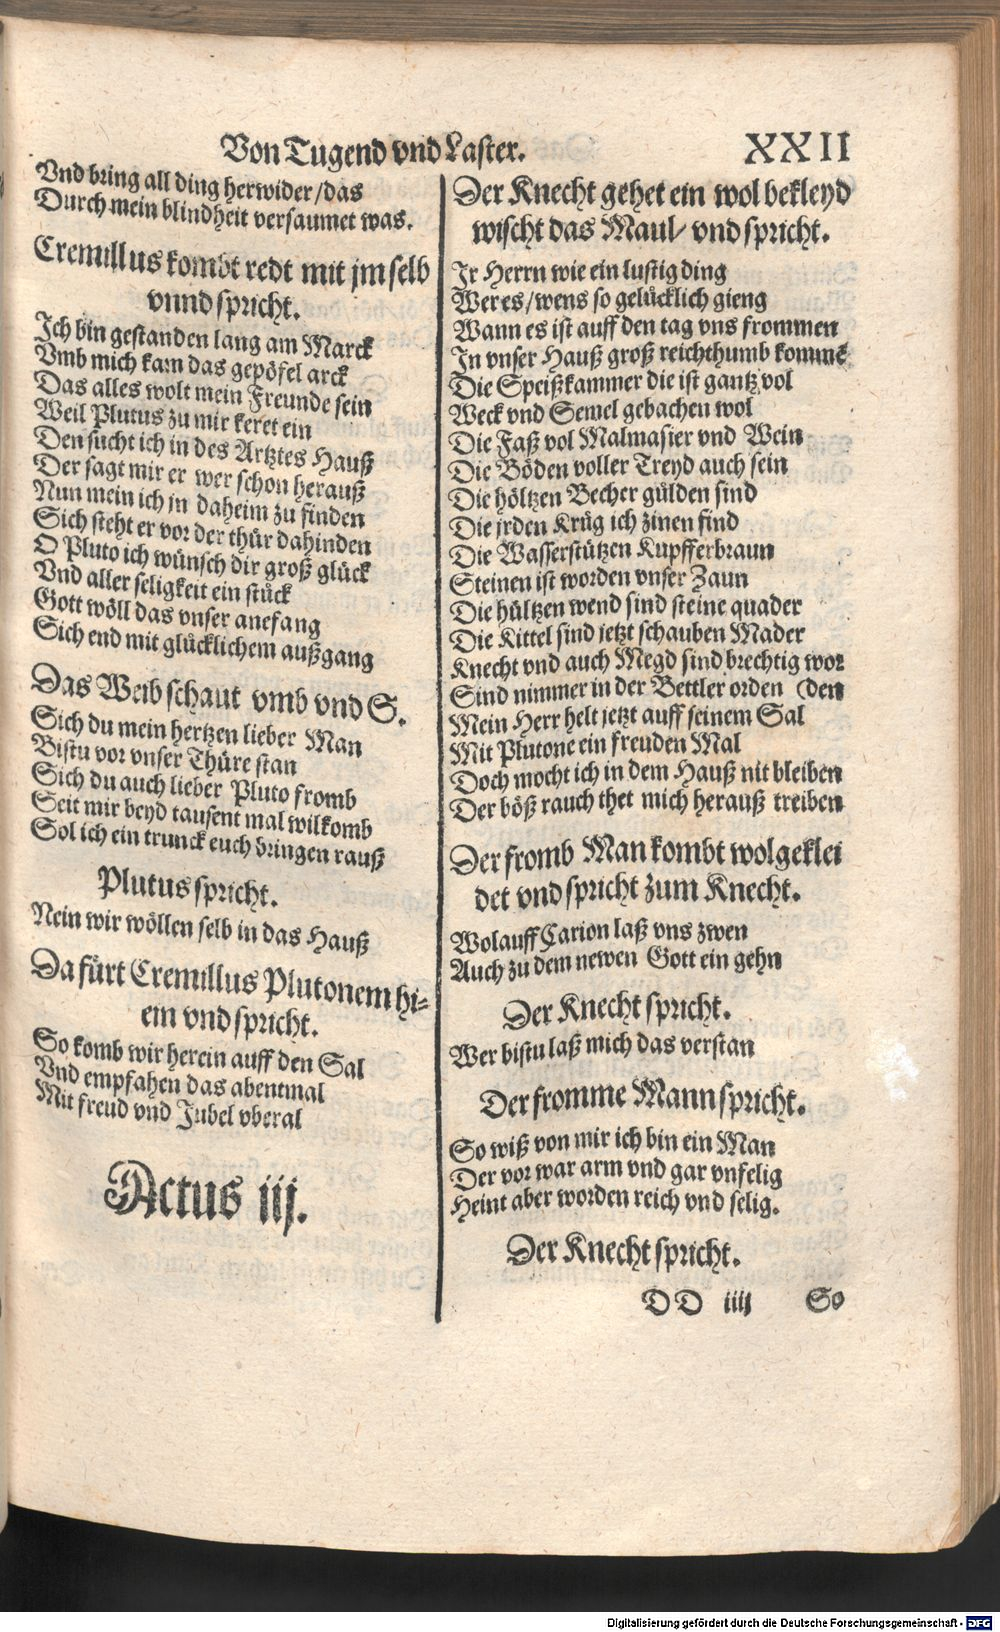 Von Tugend vnd Laster. XXII
Vnd bring all ding herwider/das
Durch mein blindheit versaumet was.
Cremillus kombt redt mit jm selb
vnnd spricht.
Ich bin gestanden lang am Marck
Vmb mich kam das gepöfel arck
Das alles wolt mein Freunde sein
Weil Plutus zu mir keret ein
Den sucht ich in des Artztes Hauß
Der sagt mir er wer schon herauß
Nun mein ich jn daheim zu finden
Sich steht er vor der thür dahinden
O Pluto ich wünsch dir groß glück
Vnd aller seligkeit ein stück
Gott wöll das vnser anefang
Sich end mit glücklichem außgang
Das Weib schaut vmb vnd S.
Sich du mein hertzen lieber Man
Bistu vor vnser Thüre stan
Sich du auch lieber Pluto fromb
Seit mir beyd tausent mal wilkomb
Sol ich ein trunck euch bringen rauß
Plutus spricht.
Nein wir wöllen selb in das Hauß
Da fürt Cremillus Plutonem hi-
ein vnd spricht.
So komb wir herein auff den Sal
Vnd empfahen das abentmal
Mit freud vnd Jubel vberal
Actus iij.
Der Knecht gehet ein wol bekleyd
wischt das Maul/ vnd spricht.
Ir Herrn wie ein lustig ding
Wer es/wens so gelücklich gieng
Wann es ist auff den tag vns frommen
In vnser Hauß groß reichthumb kommē
Die Speißkammer die ist gantz vol
Weck vnd Semel gebachen wol
Die Faß vol Malmasier vnd Wein
Die Böden voller Treyd auch sein
Die höltzen Becher gülden sind
Die jrden Krüg ich zinen find
Die Wasserstützen Kupfferbraun
Steinen ist worden vnser Zaun
Die hültzen wend sind steine quader
Die Kittel sind jetzt schauben Mader
Knecht vnd auch Megd sind brechtig wor
Sind nimmer in der Bettler orden (den
Mein Herr helt jetzt auff seinem Sal
Mit Plutone ein freuden Mal
Doch mocht ich in dem Hauß nit bleiben
Der böß rauch thet mich herauß treiben
Der fromb Man kombt wol geklei
det vnd spricht zum Knecht.
Wolauff Carion laß vns zwen
Auch zu dem newen Gott ein gehn
Der Knecht spricht.
Wer bistu laß mich das verstan
Der fromme Mann spricht.
So wiß von mir ich bin ein Man
Der vor war arm vnd gar vnselig
Heint aber worden reich vnd selig.
Der Knecht spricht.
DD iiij So
Digitalisierung gefördert durch die Deutsche Forschungsgemeinschaft - DFG